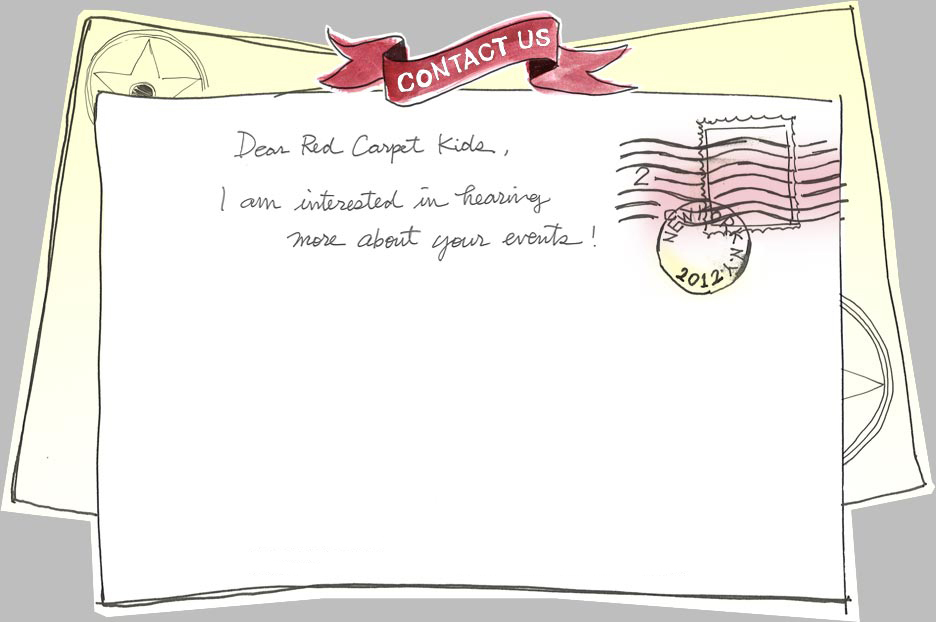 CONTACT US
Dear Red Carpet Kids,
I am interested in hearing
more about your events!
2
NEW YORK N.Y.
2012